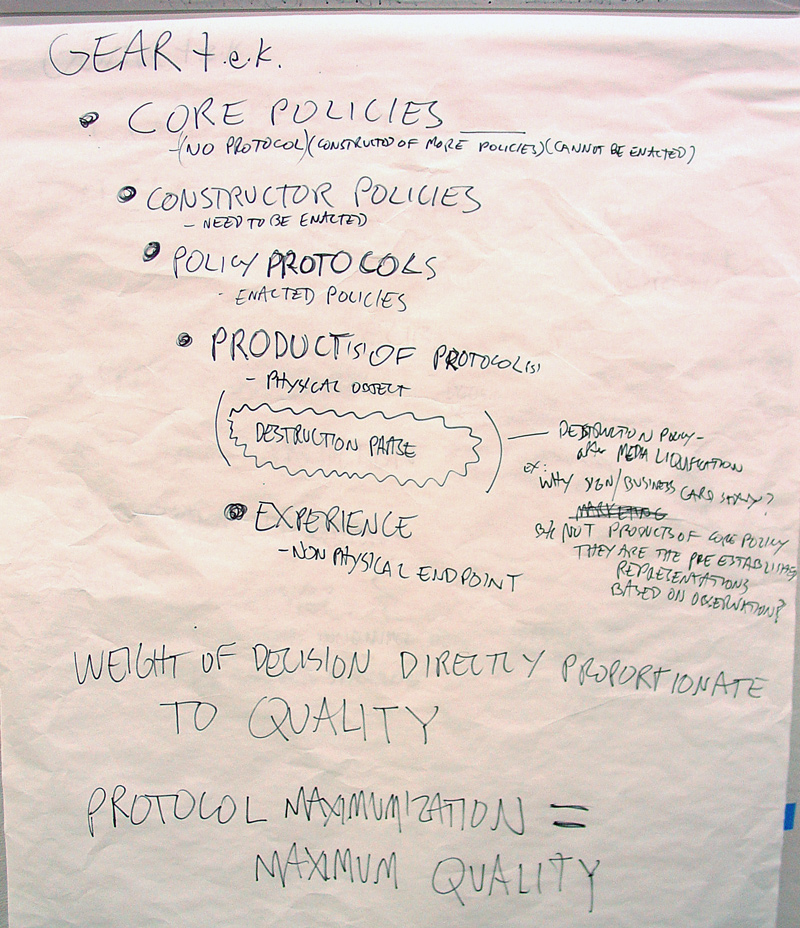 GEAR t.e.k.
• CORE POLICIES ____
-(NO PROTOCOL)(CONSTRUCTED OF MORE POLICIES)(CANNOT BE ENACTED)
• CONSTRUCTOR POLICIES
- NEED TO BE ENACTED
• POLICY PROTOCOLS
- ENACTED POLICIES
• PRODUCT(S) OF PROTOCOL(S)
- PHYSICAL OBJECT
(DESTRUCTION PHASE) — DESTRUCTION POLICY -
after MEDIA LIQUIFICATION
EX: WHY SIGN/BUSINESS CARD STAY?
MARKETING
B/C NOT PRODUCTS OF CORE POLICY
THEY ARE THE PRE ESTABLISHED
REPRESENTATIONS
BASED ON OBSERVATION?
• EXPERIENCE
- NON PHYSICAL ENDPOINT
WEIGHT OF DECISION DIRECTLY PROPORTIONATE
TO QUALITY
PROTOCOL MAXIMUMIZATION =
MAXIMUM QUALITY